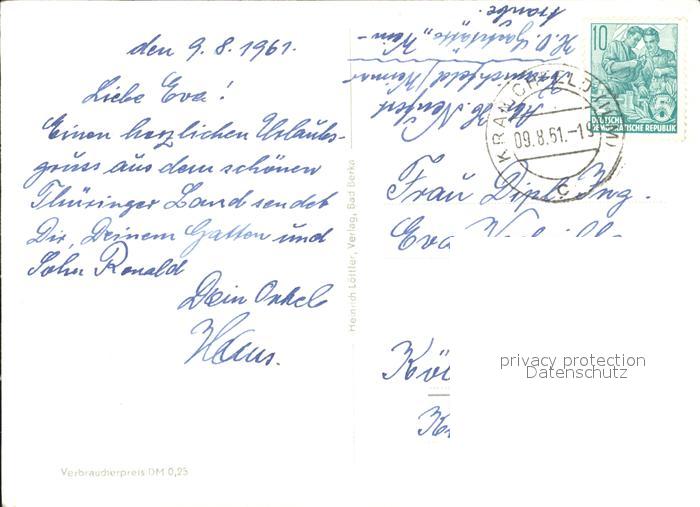 den 9.8.1961.
Liebe Eva!
Einen herzlichen Urlaubs-
gruss aus dem schönen
Thüringer Land sendet
Dir, Deinem Gatten und
Sohn Ronald
Dein Onkel
Hans.
Verbraucherpreis DM 0,25
Heinrich Löffler, Verlag, Bad Berka
Kranichfeld/Weimar
H.O. Gaststätte „Wein-
traube.
10
DEUTSCHE
DEMOKRATISCHE REPUBLIK
KRANICHFELD
09.8.61.-19
c
Frau Dipl. Ing.
Eva
privacy protection
Datenschutz